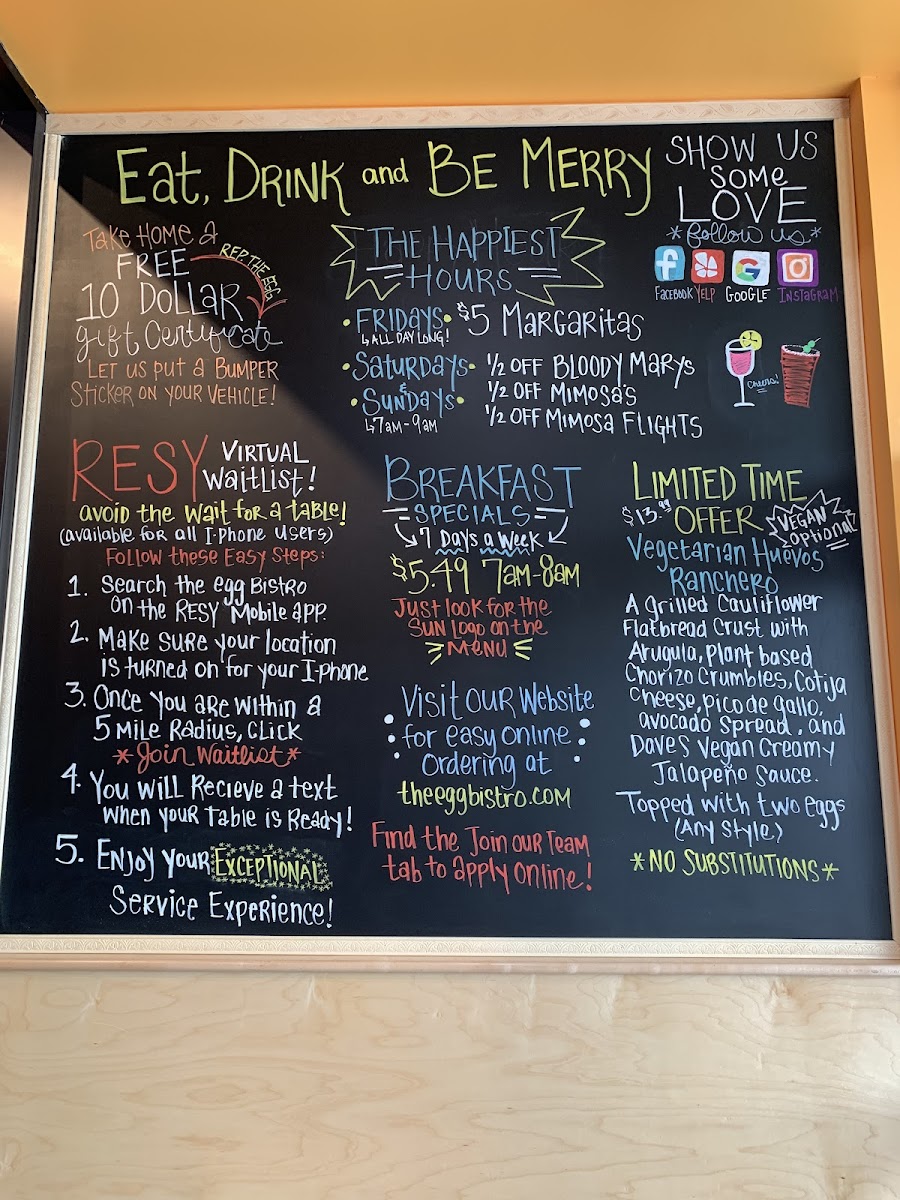 Eat, DRINK and BE MERRY
SHOW US
SOME
LOVE
*follow us*
FACEBOOK YELP GOOGLE INSTAGRAM
Take Home a
FREE
10 DOLLAR
gift Certificate
REP. THE EGG
LET US PUT A BUMPER
STICKER ON YOUR VEHICLE!
THE HAPPIEST
HOURS
• FRIDAYS •
ALL DAY LONG!
$5 MARGARITAS
• SATURDAYS •
&
• SUNDAYS •
7AM-9AM
1/2 OFF BLOODY MARYS
1/2 OFF MIMOSA'S
1/2 OFF MIMOSA FLIGHTS
Cheers!
RESY VIRTUAL
WAITLIST!
avoid the wait for a table!
(available for all I-Phone users)
Follow these Easy Steps:
1. Search the egg Bistro
on the RESY Mobile app.
2. Make sure your location
is turned on for your I-Phone
3. Once you are within a
5 mile Radius, click
*Join Waitlist*
4. You will Recieve a text
when your Table is Ready!
5. Enjoy Your EXCEPTIONAL
Service Experience!
BREAKFAST
SPECIALS
7 Days a Week
$5.49 7am-8am
Just look for the
Sun logo on the
Menu
Visit our Website
for easy online
Ordering at
theeggbistro.com
Find the Join our Team
tab to apply online!
LIMITED TIME
$13.99 OFFER
VEGAN
optional
Vegetarian Huevos
Ranchero
A grilled Cauliflower
Flatbread Crust with
Arugula, Plant based
Chorizo Crumbles, Cotija
Cheese, pico de gallo,
avocado spread, and
Dave's Vegan Creamy
Jalapeño Sauce.
Topped with two eggs
(Any Style)
*NO SUBSTITUTIONS*